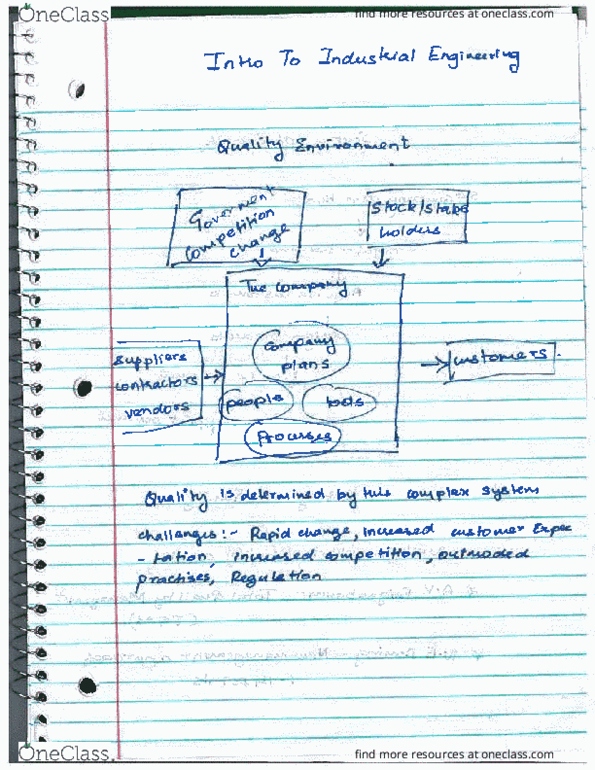 OneClass
find more resources at oneclass.com
Intro To Industrial Engineering
Quality Environment
Goverment
competition
change
Stock/stake
holders
The company
company
plans
suppliers
contractors
vendors
people
tools
Processes
customers.
Quality is determined by this complex system
challenges:- Rapid change, increased customer Expec
-tation, increased competition, outmoded
practises, Regulation
OneClass
find more resources at oneclass.com